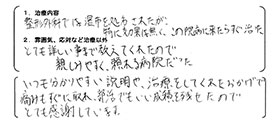 1. 治療内容
整形外科では湿布を処方されたが、
特に効果は無く、この院に来たらすぐ治た
2. 雰囲気、応対など治療以外
とても詳しい事まで教えてくれたので
親しみやすく、頼れる病院だった
いつも分かりやすい説明や、治療をしてくれたおかげで
痛みもすぐに取れ、部活でもいい成績を残せたので
とても感謝しています。